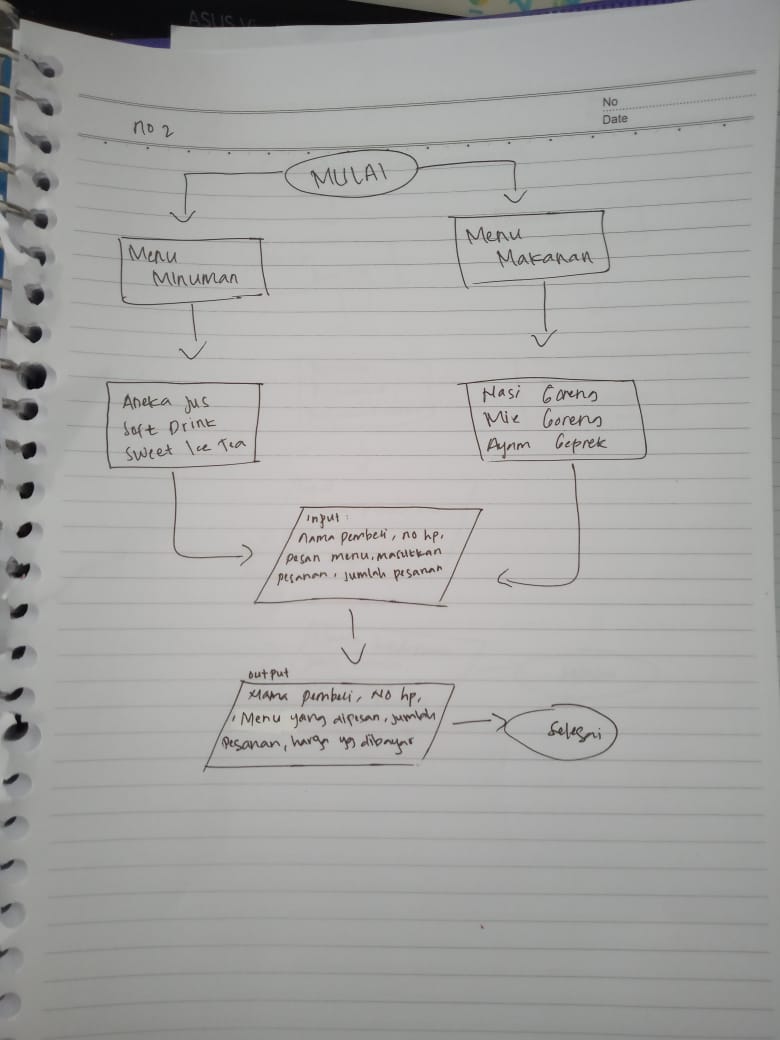 ASUS Vi
No
Date
no 2
MULAI
Menu
Minuman
Menu
Makanan
Aneka Jus
Soft Drink
Sweet Ice Tea
Nasi Goreng
Mie Goreng
Ayam Geprek
Input :
nama pembeli, no hp,
pesan menu, masukkan
pesanan, jumlah pesanan
output
Nama pembeli, No hp,
, Menu yang dipesan, jumlah
pesanan, harga yg dibayar
Selesai